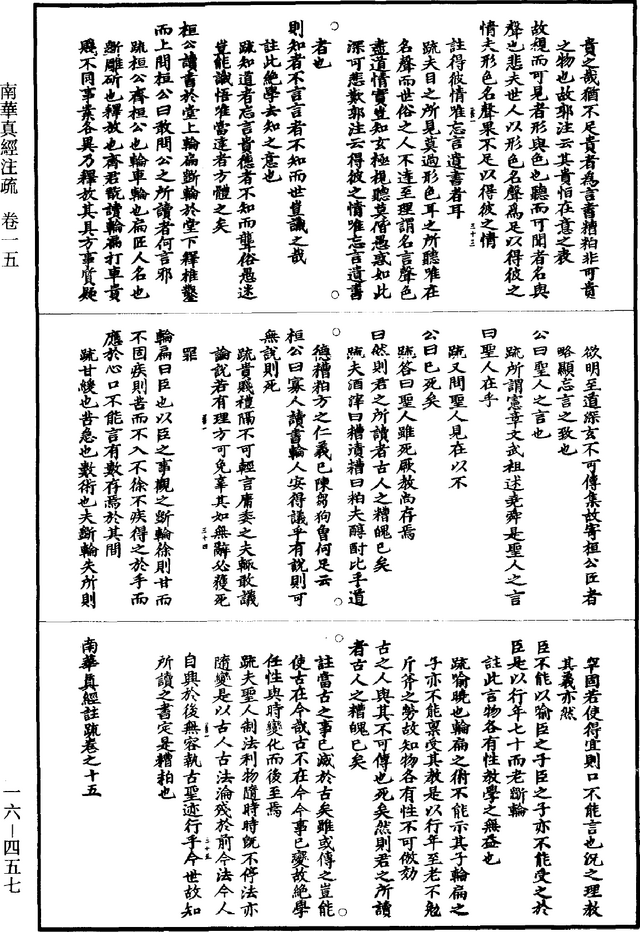 南華真經注疏 卷一五
一六—四五七
貴之哉猶不足貴者為言書糟粕非可貴
之物也故郭注云其貴恒在意之表
故視而可見者形與色也聽而可聞者名與
聲也悲夫世人以形色名聲為足以得彼之
情夫形色名聲果不足以得彼之情
註得彼情唯忘言遺書者耳
疏夫目之所見莫過形色耳之所聽唯在
名聲而世俗之人不達至理謂名言聲色
盡道情實豈知玄極視聽莫偕愚惑如此
深可悲歎郭注云得彼之情唯忘言遺書
者也
則知者不言言者不知而世豈識之哉
註此絕學去知之意也
疏知道者忘言貴德者不知而聾俗愚迷
豈能識悟唯當達者方體之矣
桓公讀書於堂上輪扁斲輪於堂下釋椎鑿
而上問桓公曰敢問公之所讀者何言邪
疏桓公齊桓公也輪車輪也扁匠人名也
斲雕斫也釋放也齊君翫讀輪扁打車貴
賤不同事業各異乃釋放其具方事質疑
欲明至道深玄不可傳集故寄桓公匠者
略顯忘言之致也
公曰聖人之言也
疏所謂憲章文武祖述堯舜是聖人之言
曰聖人在乎
疏又問聖人見在以不
公曰已死矣
疏答曰聖人雖死厥教尚存焉
曰然則君之所讀者古人之糟魄已矣
疏夫酒滓曰糟漬糟曰粕夫醇酎比乎道
德糟粕方之仁義已陳芻狗曾何足云
桓公曰寡人讀書輪人安得議乎有說則可
無說則死
疏貴賤禮隔不可輕言庸委之夫輒敢議
論說若有理方可免辜其如無辭必獲死
罪
輪扁曰臣也以臣之事觀之斲輪徐則甘而
不固疾則苦而不入不徐不疾得之於手而
應於心口不能言有數存焉於其間
疏甘緩也苦急也數術也夫斲輪失所則
罕國若使得宜則口不能言也況之理教
其義亦然
臣不能以喻臣之子臣之子亦不能受之於
臣是以行年七十而老斲輪
註此言物各有性教學之無益也
疏喻曉也輪扁之術不能示其子輪扁之
子亦不能稟受其教是以行年至老不勉
斤斧之勞故知物各有性不可倣効
古之人與其不可傳也死矣然則君之所讀
者古人之糟魄已矣
註當古之事已滅於古矣雖或傳之豈能
使古在今哉古不在今今事已變故絕學
任性與時變化而後至焉
疏夫聖人制法利物隨時時既不停法亦
隨變是以古人古法淪殘於前今法今人
自興於後無容執古聖迹行乎今世故知
所讀之書定是糟粕也
南華真經註疏卷之十五